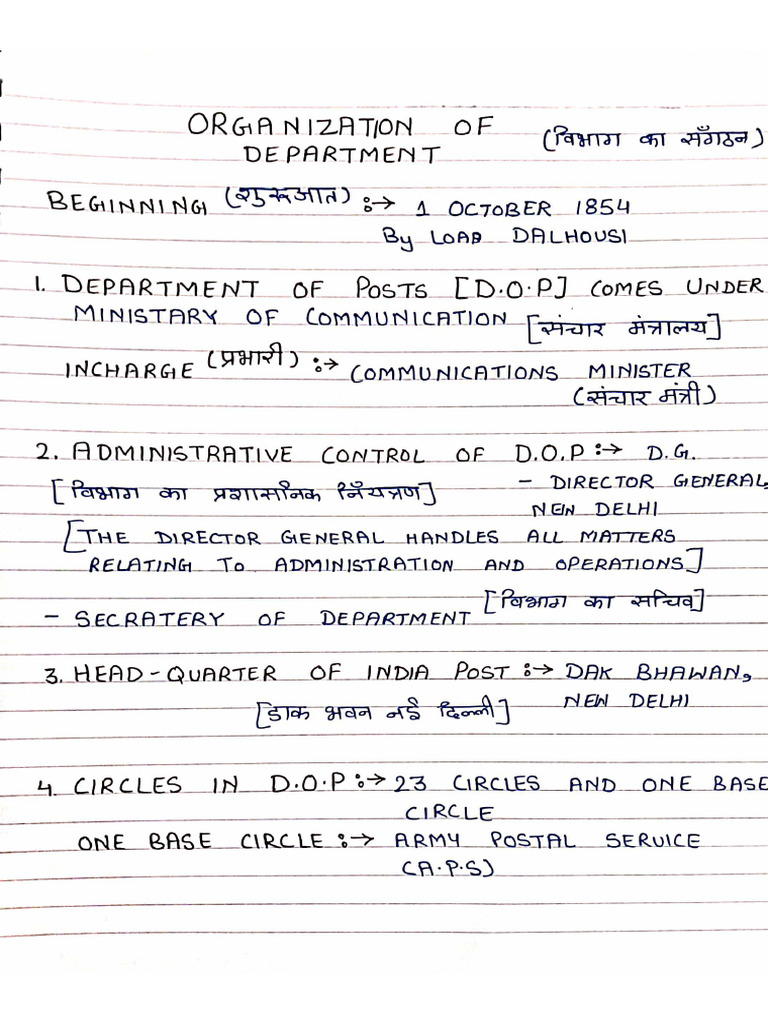 ORGANIZATION OF (विभाग का सँगठन)
DEPARTMENT
BEGINNING (शुरूआत) :→ 1 OCTOBER 1854
By LOAD DALHOUSI
1. DEPARTMENT OF POSTS [D.O.P] COMES UNDER
MINISTARY OF COMMUNICATION [संचार मंत्रालय]
INCHARGE (प्रभारी) :→ COMMUNICATIONS MINISTER
(संचार मंत्री)
2. ADMINISTRATIVE CONTROL OF D.O.P :→ D.G.
[विभाग का प्रशासनिक नियँत्रण] - DIRECTOR GENERAL,
NEW DELHI
[THE DIRECTOR GENERAL HANDLES ALL MATTERS
RELATING TO ADMINISTRATION AND OPERATIONS]
- SECRATERY OF DEPARTMENT [विभाग का सचिव]
3. HEAD-QUARTER OF INDIA POST :→ DAK BHAWAN,
[डाक भवन नई दिल्ली] NEW DELHI
4. CIRCLES IN D.O.P :→ 23 CIRCLES AND ONE BASE
CIRCLE
ONE BASE CIRCLE :→ ARMY POSTAL SERVICE
(A.P.S)